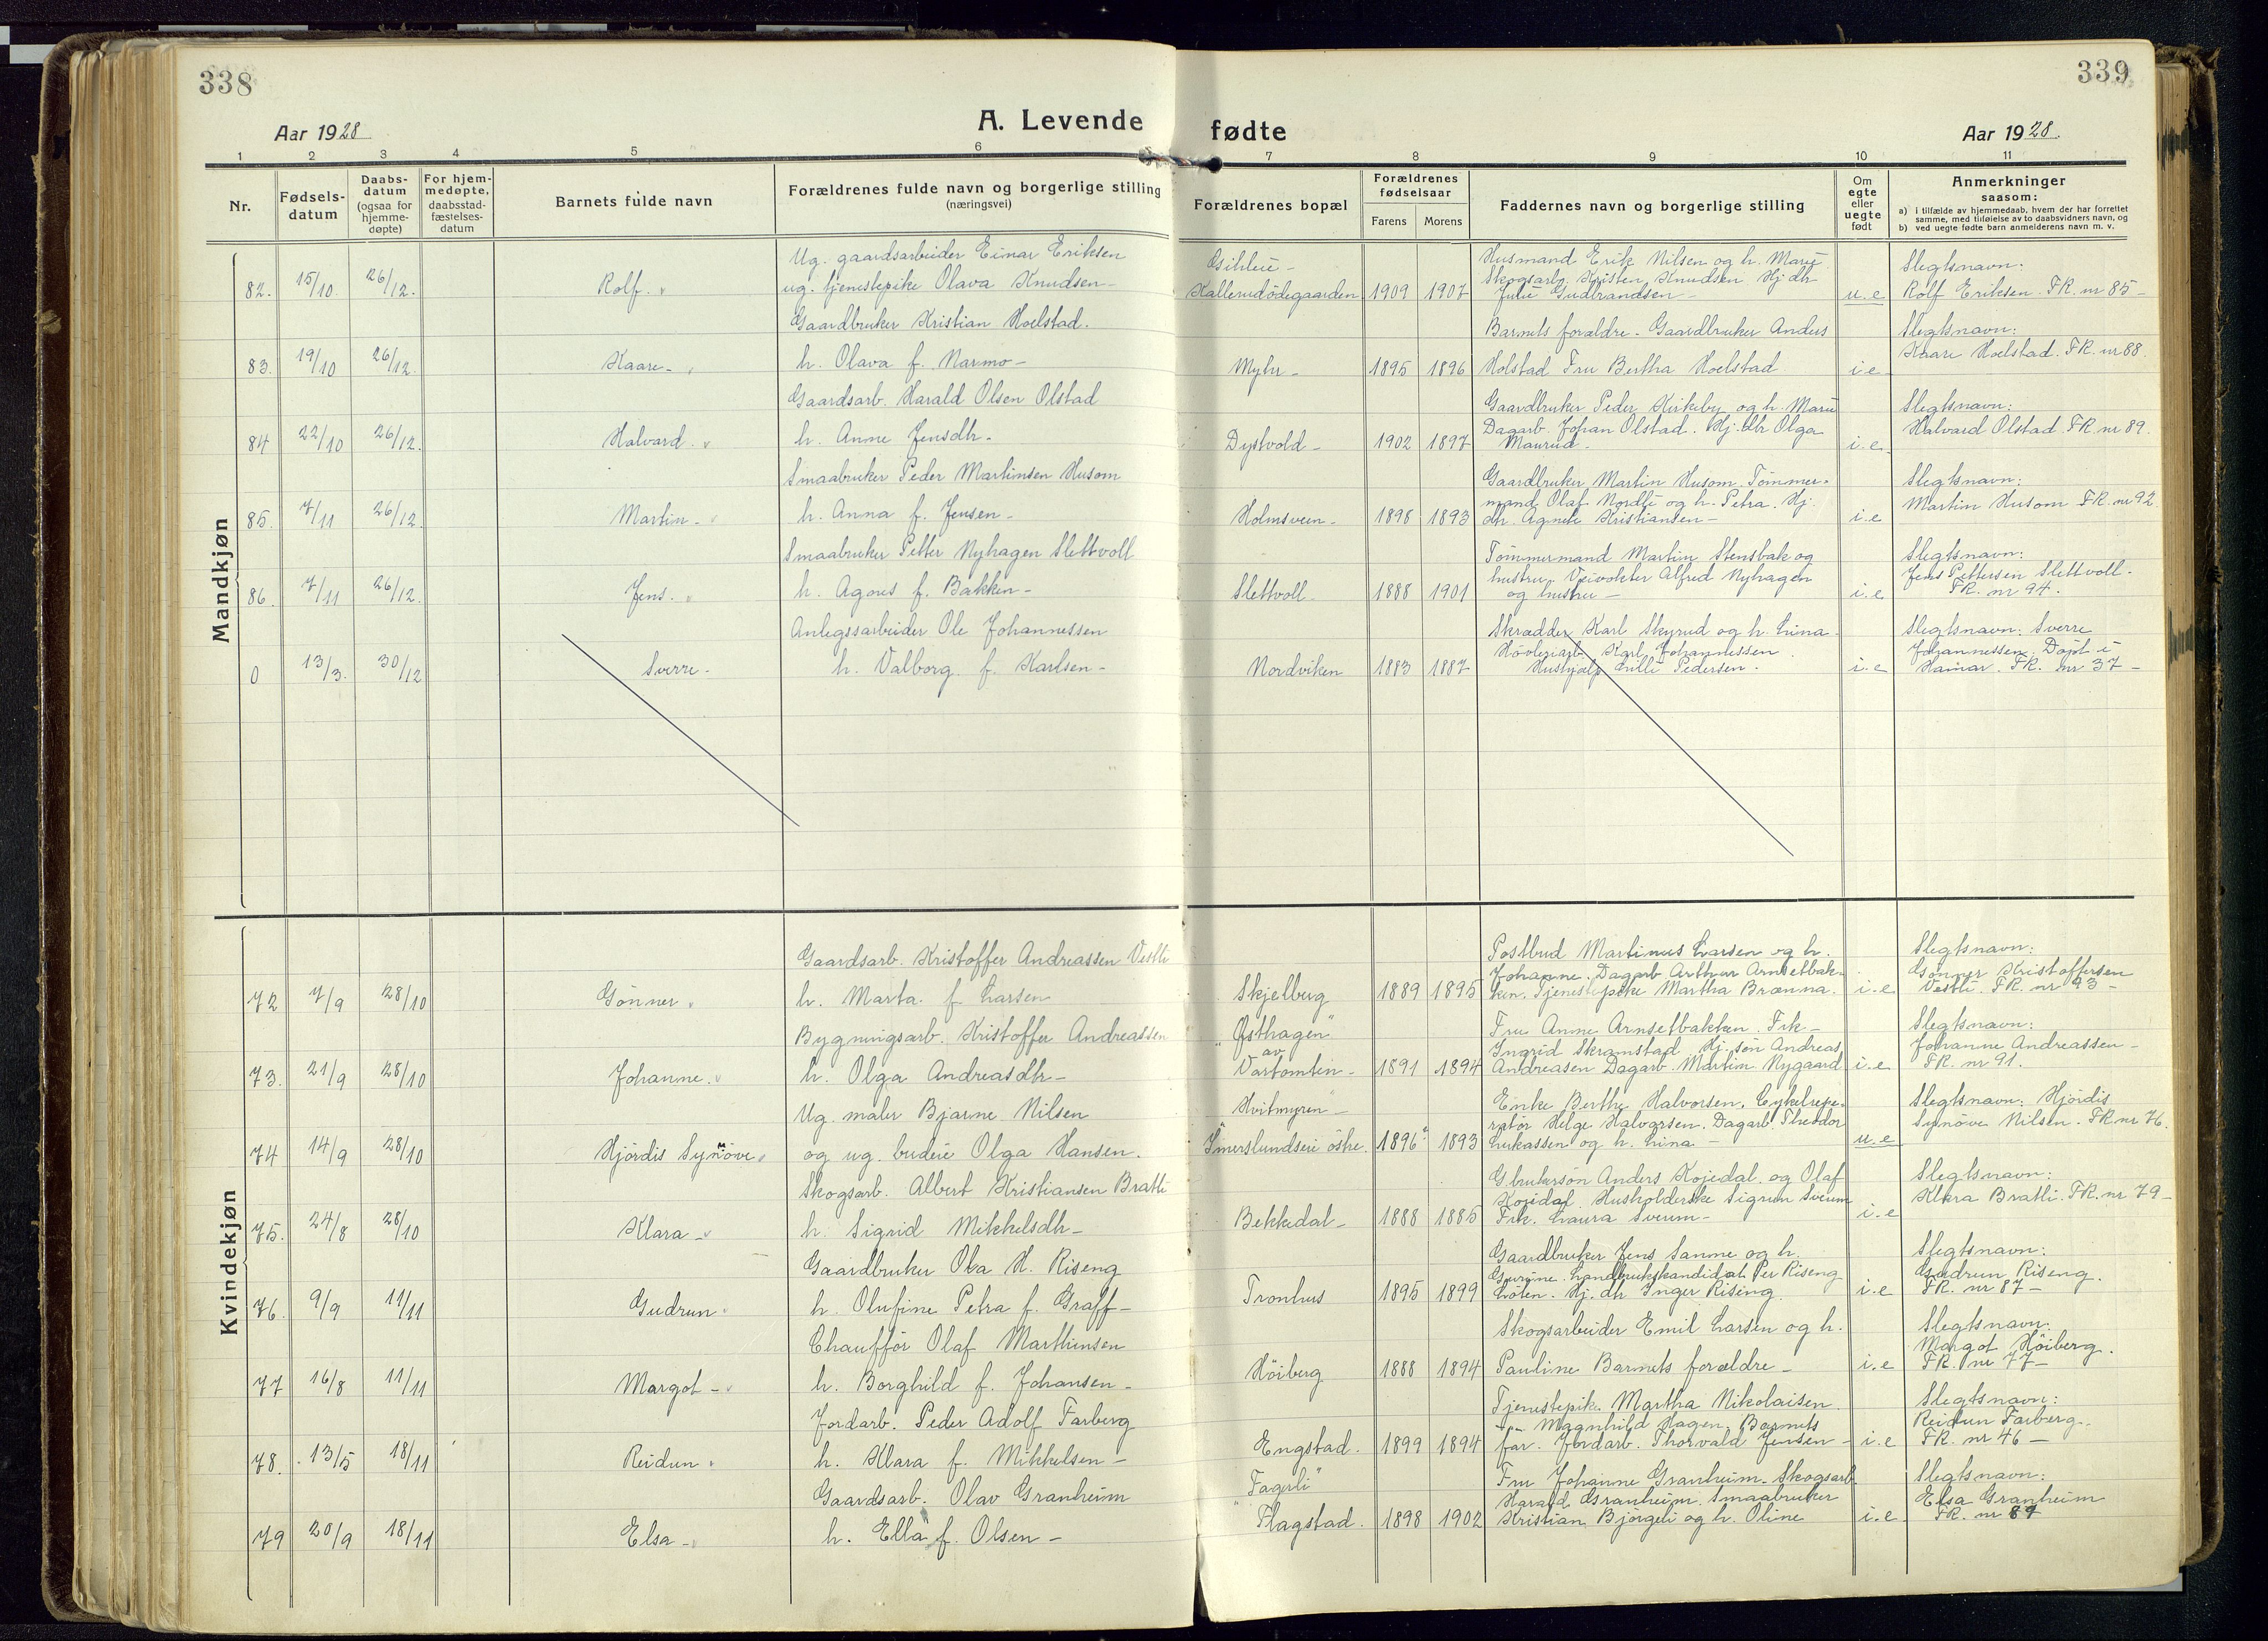 338
339
Aar 1928
A. Levende fødte
Aar 1928.
1 2 3 4 5 6 7 8 9 10 11
Nr.
Fødsels-
datum
Daabs-
datum
(ogsaa for
hjemme-
døpte)
For hjem-
medøpte,
daabsstad-
fæstelses-
datum
Barnets fulde navn
Forældrenes fulde navn og borgerlige stilling
(næringsvei)
Forældrenes bopæl
Forældrenes
fødselsaar
Farens Morens
Faddernes navn og borgerlige stilling
Om
egte
eller
uegte
født
Anmerkninger
saasom:
a) i tilfælde av hjemmedaab, hvem der har forrettet
samme, med tilføielse av to daabsvidners navn, og
b) ved uegte fødte barn anmelderens navn m. v.
Mandkjøn
82. 15/10. 26/12. Rolf.
Ug. gaardsarbeider Einar Eriksen
ug. tjenestepike Olava Knudsen -
Kallerudødegaarden 1909 1907
Husmand Erik Nilsen og h. Marie
Skogsarb. Kristen Knudsen Hj dtr
Julie Gudbrandsen -
u.e
Slegtsnavn:
Rolf Eriksen. FR. nr 85 -
83. 19/10 26/12. Kaare -
Gaardbruker Kristian Hoelstad.
h. Olava f. Narmo -
Myhr - 1895 1896
Barnets forældre - Gaardbruker Anders
Holstad Fru Bertha Hoelstad
i.e
Slegtsnavn:
Kaare Hoelstad. FR. nr 88.
84 22/10 26/12. Halvard.
Gaardsarb. Harald Olsen Olstad
h. Anne Jensdtr.
Dystvold - 1902 1897
Gaardbruker Peder Kirkeby og h. Marie
Dagarb. Johan Olstad. Hj. dtr Olga
Maurud -
i.e.
Slegtsnavn:
Halvard Olstad. FR. nr 89.
85. 7/11 26/12. Martin -
Smaabruker Peder Martinsen Husom
h. Anna f. Jensen -
Holmsveen - 1898 1893
Gaardbruker Martin Husom. Tømmer-
mand Olaf Nordli og h. Petra. Hj.
dtr. Agnete Kristiansen -
i.e
Slegtsnavn:
Martin Husom FR. nr 92.
86. 7/11 26/12. Jens.
Smaabruker Petter Nyhagen Slettvoll
h. Agnes f. Bakken -
Slettvoll. 1888 1901
Tømmermand Martin Stensbak og
hustru. Veivokter Alfred Nyhagen
og hustru -
i.e.
Slegtsnavn:
Jens Pettersen Slettvoll.
FR. nr 94.
0 13/3. 30/12 Sverre -
Anlegssarbeider Ole Johannessen
h. Valborg f. Karlsen -
Nordviken 1883 1887
Skrædder Karl Skyrud og h. Lina
Høvleriarb. Karl Johannessen
Hushjælp Lilli Pedersen.
i.e
Slegtsnavn: Sverre
Johannessen. Døpt i
Hamar. FR. nr 37 -
Kvindekjøn
72 7/9 28/10 Gønner
Gaardsarb. Kristoffer Andreassen Vestli
h. Marta f. Larsen
Skjelberg 1889 1895
Postbud Martinus Larsen og h.
Johanne. Dagarb Arthur Arnsetbak-
ken. Tjenestepike Martha Brænna.
i.e
Slegtsnavn:
Gønner Kristoffersen
Vestli. FR. nr 93 -
73. 21/9 28/10 Johanne.
Bygningsarb. Kristoffer Andreassen
h. Olga Andreasdtr -
"Østhagen"
av
Vartomten - 1891 1894
Fru Anne Arnsetbakken. Frk -
Ingrid Skramstad Hj. søn Andreas
Andreasen Dagarb. Martin Nygaard
i.e
Slegtsnavn:
Johanne Andreassen -
FR. nr 91.
74 14/9 28/10 Hjördis Synnöve
Ug. maler Bjarne Nilsen
og ug. budeie Olga Hansen.
"Hvitmyren" -
Imerslundseie östre. 1896 1893
Enke Berthe Halvorsen. Cykelrepe-
ratør Helge Halvorsen. Dagarb. Theodor
Lukassen og h. Lina -
u.e
Slegtsnavn: Hjördis
Synöve Nilsen. FR nr 76.
75. 24/8 28/10 Klara -
Skogsarb. Albert Kristiansen Bratli
h. Sigrid Mikkelsdtr -
Bekkedal - 1888 1885
Gbrukersøn Anders Kojedal. og Olaf
Kojedal. Husholderske Sigrun Sveum
Frk. Laura Sveum -
i.e
Slegtsnavn:
Klara Bratli. FR. nr 79 -
76. 9/9 11/11 Gudrun
Gaardbruker Ola H. Riseng
h. Olufine Petra f. Graff -
Tronhus 1895 1899
Gaardbruker Jens Sanne og h.
Gurine. Landbrukskandidat Per Riseng
Løten. Hj. dtr Inger Riseng.
i.e
Slegtsnavn:
Gudrun Riseng.
FR. nr 87 -
77 16/8 11/11 Margot -
Chauffør Olaf Marthinsen
h. Borghild f. Johansen -
Höiberg 1888 1894
Skogsarbeider Emil Larsen og h.
Pauline Barnets forældre -
i.e
Slegtsnavn.
Margot Höiberg.
FR. nr 77 -
78. 13/5 18/11 Reidun
Jordarb. Peder Adolf Farberg
h. Klara f. Mikkelsen -
Engstad. 1899 1894
Tjenestepik. Martha Nikolaisen.
Magnhild Hagen. Barnets
far. Jordarb. Thorvald Jensen -
i.e
Slegtsnavn:
Reidun Farberg.
FR. nr 46 -
79 20/9 18/11 Elsa -
Gaardsarb. Olav Granheim
h. Ella f. Olsen -
"Fagerli"
Flagstad. 1898 1902
Fru Johanne Granheim. Skogsarb
Harald Granheim. Smaabruker
Kristian Bjørgeli og h. Oline
i.e
Slegtsnavn:
Elsa Granheim
FR. nr 84